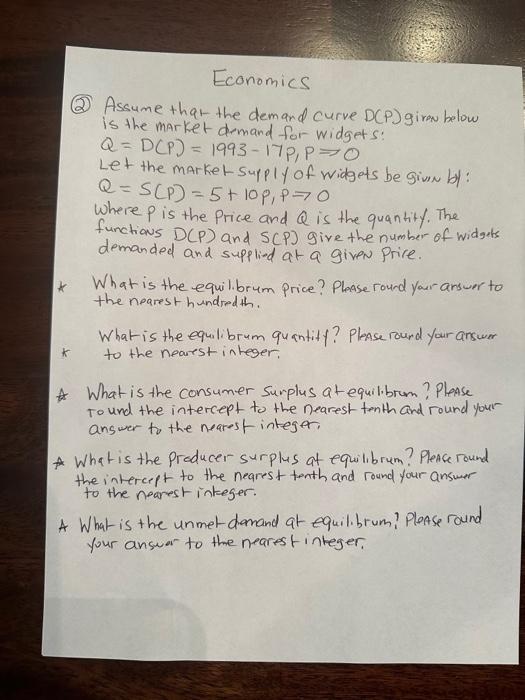 Economics
② Assume that the demand curve D(P) given below
is the market demand for widgets:
Q = D(P) = 1993 - 17P, P => 0
Let the market supply of widgets be given by:
Q = S(P) = 5 + 10P, P => 0
where P is the price and Q is the quantity. The
functions D(P) and S(P) give the number of widgets
demanded and supplied at a given price.
* What is the equilibrum price? Please round your answer to
the nearest hundredth.
What is the equilibrum quantity? Please round your answer
* to the nearest integer.
* What is the consumer surplus at equilibrum? Please
round the intercept to the nearest tenth and round your
answer to the nearest integer.
* What is the producer surplus at equilibrum? Please round
the intercept to the nearest tenth and round your answer
to the nearest integer.
* What is the unmet demand at equilibrum? Please round
your answer to the nearest integer.